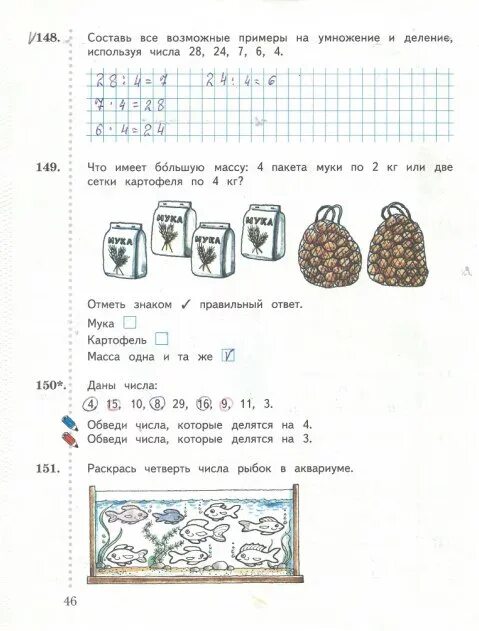 √148. Составь все возможные примеры на умножение и деление,
используя числа 28, 24, 7, 6, 4.
28 : 4 = 7 24 : 4 = 6
7 · 4 = 28
6 · 4 = 24
149. Что имеет бо́льшую массу: 4 пакета муки по 2 кг или две
сетки картофеля по 4 кг?
МУКА МУКА МУКА МУКА
Отметь знаком ✓ правильный ответ.
Мука
Картофель
Масса одна и та же ✓
150*. Даны числа:
4, 15, 10, 8, 29, 16, 9, 11, 3.
Обведи числа, которые делятся на 4.
Обведи числа, которые делятся на 3.
151. Раскрась четверть числа рыбок в аквариуме.
46